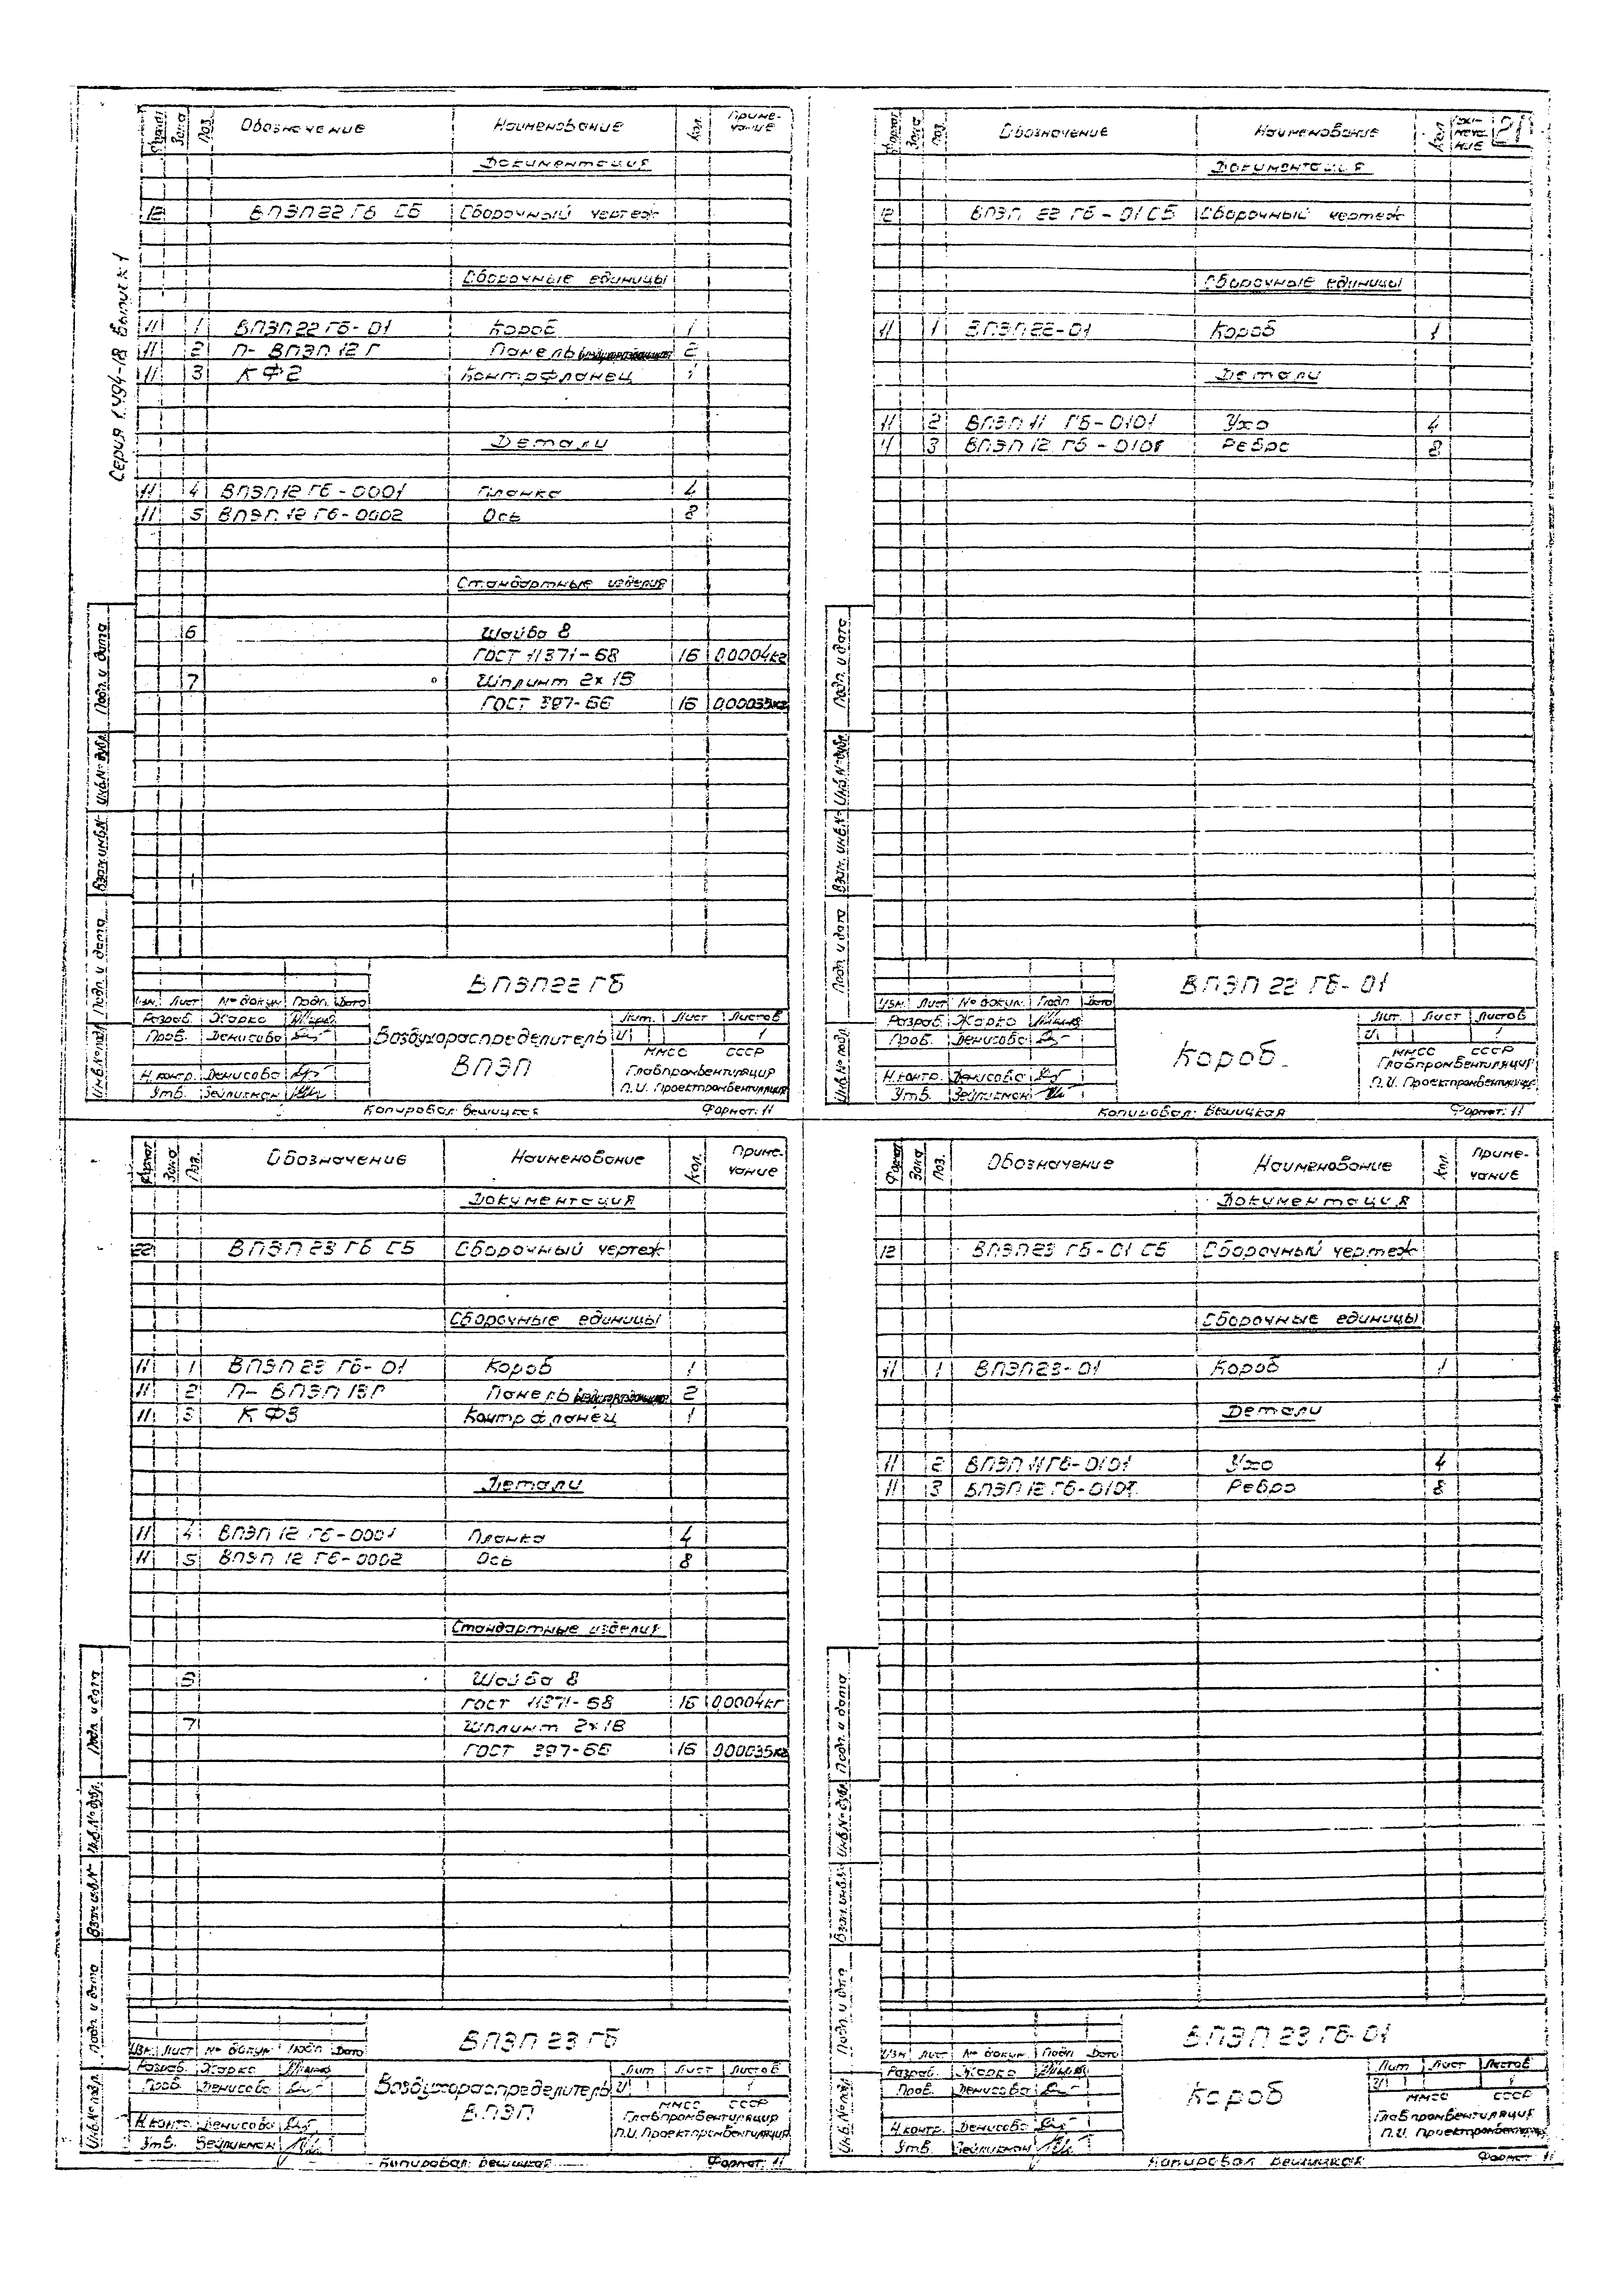 Серия 1.494-18 Выпуск 1
Формат Зона Поз. Обозначение Наименование Кол. Примечание
Документация
12 ВПЭП22 ГБ СБ Сборочный чертеж
Сборочные единицы
11 1 ВПЭП22 ГБ-01 Короб 1
11 2 П-ВПЭП 12 Г Панель 2
11 3 КФ2 Контрфланец 1
Детали
11 4 ВПЭП12 ГБ-0001 Планка 4
11 5 ВПЭП 12 ГБ-0002 Ось 8
Стандартные изделия
6 Шайба 8
ГОСТ 11371-68 16 0,0004кг
7 Шплинт 2х18
ГОСТ 397-66 16 0,00035кг
Подп. и дата
Инв.№ дубл.
Взам.инв.№
Подп. и дата
Инв.№ подл.
ВПЭП22 ГБ
Изм. Лист № докум. Подп. Дата
Разраб. Жарко
Пров. Денисова
Н.контр. Денисова
Утв. Зейликман
Воздухораспределитель
ВПЭП
Лит. Лист Листов
И 1
ММСС СССР
Главпромвентиляция
П.И. Проектпромвентиляция
Копировал: Вешицкая Формат: 11
Формат Зона Поз. Обозначение Наименование Кол. Примечание 21
Документация
12 ВПЭП 22 ГБ-01 СБ Сборочный чертеж
Сборочные единицы
11 1 ВПЭП22-01 Короб 1
Детали
11 2 ВПЭП 11 ГБ-0101 Ухо 4
11 3 ВПЭП 12 ГБ-0101 Ребро 8
Подп. и дата
Инв.№ дубл.
Взам. инв.№
Подп. и дата
Инв.№ подл.
ВПЭП 22 ГБ-01
Изм. Лист № докум. Подп. Дата
Разраб. Жарко
Пров. Денисова
Н.контр. Денисова
Утв. Зейликман
Короб
Лит. Лист Листов
И 1
ММСС СССР
Главпромвентиляция
П.И. Проектпромвентиляция
Копировал: Вешицкая Формат: 11
Формат Зона Поз. Обозначение Наименование Кол. Примечание
Документация
22 ВПЭП 23 ГБ СБ Сборочный чертеж
Сборочные единицы
11 1 ВПЭП 23 ГБ-01 Короб 1
11 2 П-ВПЭП 13Г Панель 2
11 3 КФ3 Контрфланец 1
Детали
11 4 ВПЭП 12 ГБ-0001 Планка 4
11 5 ВПЭП 12 ГБ-0002 Ось 8
Стандартные изделия
6 Шайба 8
ГОСТ 11371-68 16 0,0004кг
7 Шплинт 2х18
ГОСТ 397-66 16 0,00035кг
Подп. и дата
Инв.№ дубл.
Взам.инв.№
Подп. и дата
Инв.№ подл.
ВПЭП 23 ГБ
Изм. Лист № докум. Подп. Дата
Разраб. Жарко
Пров. Денисова
Н.контр. Денисова
Утв. Зейликман
Воздухораспределитель
ВПЭП
Лит. Лист Листов
И 1
ММСС СССР
Главпромвентиляция
П.И. Проектпромвентиляция
Копировал: Вешицкая Формат: 11
Формат Зона Поз. Обозначение Наименование Кол. Примечание
Документация
12 ВПЭП23 ГБ-01 СБ Сборочный чертеж
Сборочные единицы
11 1 ВПЭП23-01 Короб 1
Детали
11 2 ВПЭП 11 ГБ-0101 Ухо 4
11 3 ВПЭП 12 ГБ-0101 Ребро 8
Подп. и дата
Инв.№ дубл.
Взам.инв.№
Подп. и дата
Инв.№ подл.
ВПЭП 23 ГБ-01
Изм. Лист № докум. Подп. Дата
Разраб. Жарко
Пров. Денисова
Н.контр. Денисова
Утв. Зейликман
Короб
Лит. Лист Листов
И 1
ММСС СССР
Главпромвентиляция
П.И. Проектпромвентиляция
Копировал: Вешицкая Формат: 11